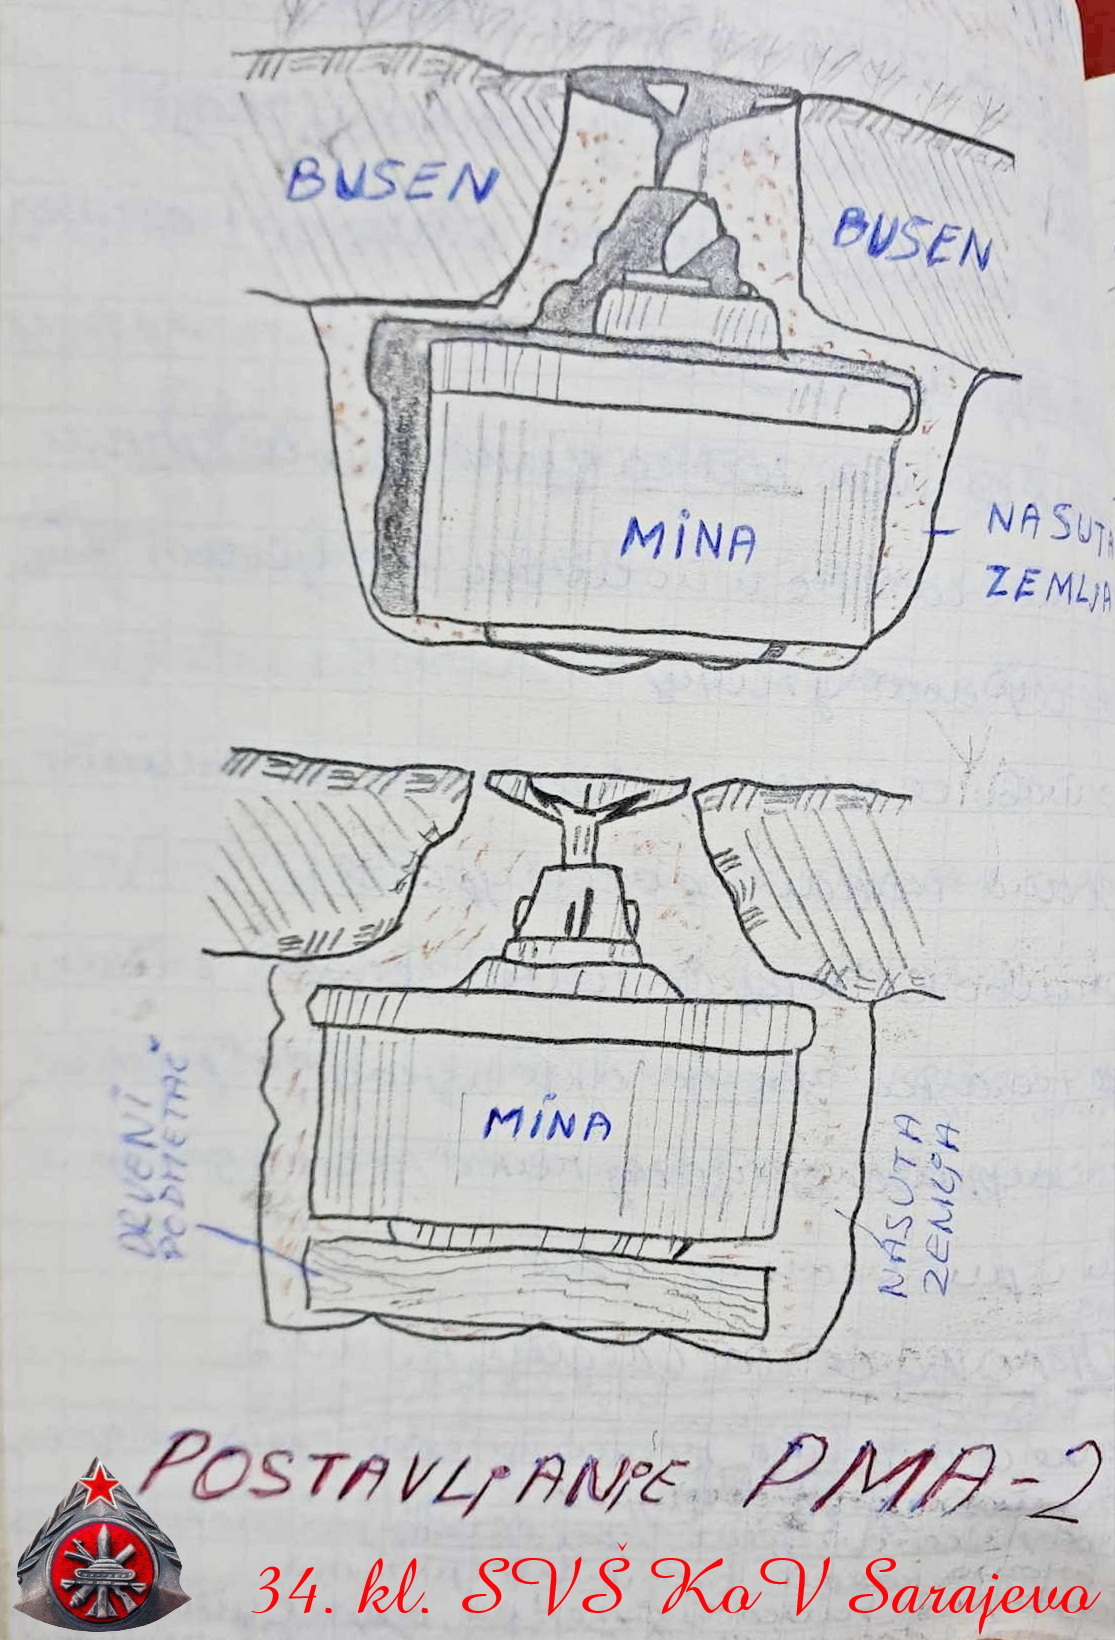 BUSEN
BUSEN
MINA
NASUTA
ZEMLJA
MINA
DRVENI
PODMETAČ
NASUTA
ZEMLJA
POSTAVLJANJE PMA-2
34. kl. SVŠ KoV Sarajevo